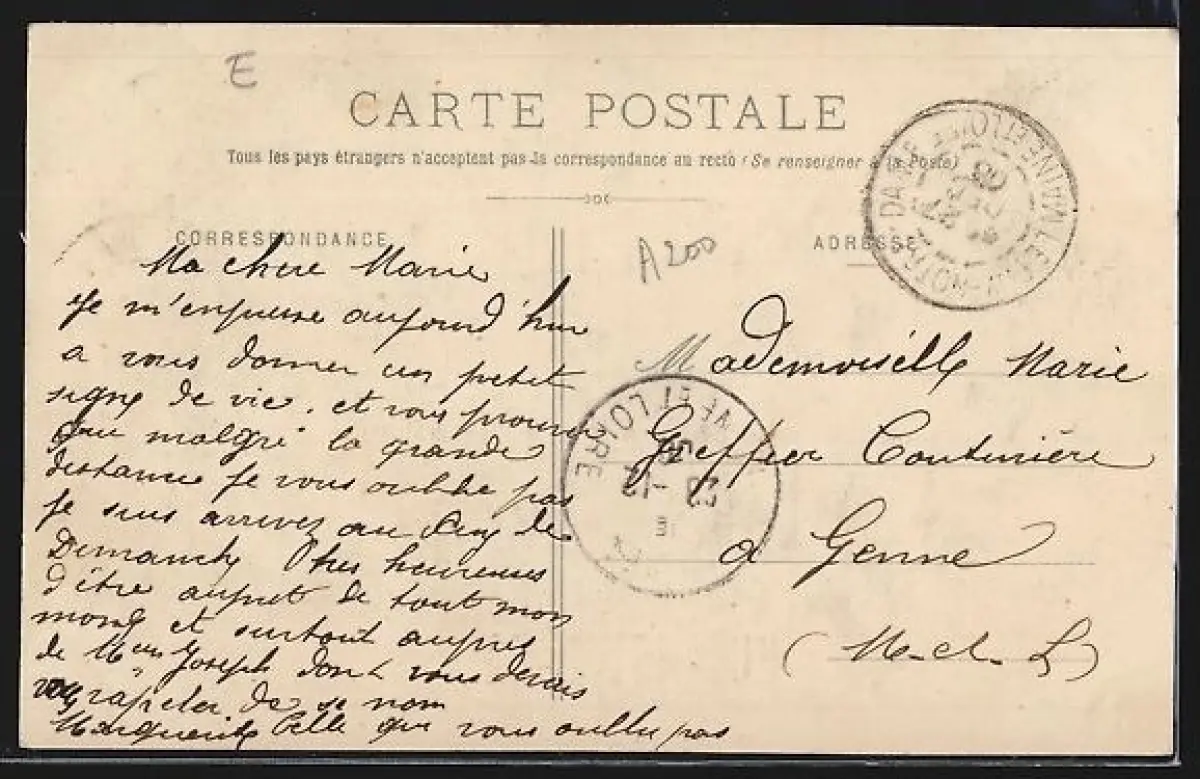 E
CARTE POSTALE
Tous les pays étrangers n'acceptent pas la correspondance au recto (Se renseigner à la Poste)
CORRESPONDANCE
A200
ADRESSE
Ma chere Marie
Je m'enpresse aujourd'hui
a vous donner un petit
signe de vie. et vous prouver
que malgré la grande
distance je vous oublie pas
je suis arrivez au Puy de
Dimanche
heureuse
d'être aupret de tout mon
monde et surtout aupres
de Joseph dont vous devais
vous rapeler de se nom
Marguerite Celle qui vous oublie pas
Mademoiselle Marie
Greffier Couturière
a Genne
(M. et. L)
NE ET LOIRE
MAINE ET LOIRE